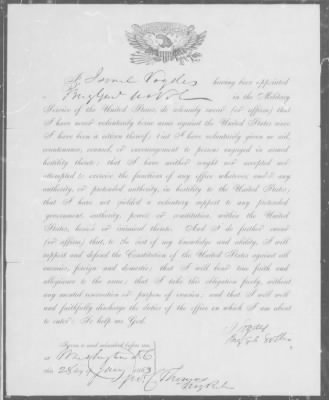 I, Israel Vogdes having been appointed
Brig Genl in the Military
Service of the United States, do solemnly swear (or affirm) that
I have never voluntarily borne arms against the United States since
I have been a citizen thereof; that I have voluntarily given no aid,
countenance, counsel, or encouragement to persons engaged in armed
hostility thereto; that I have neither sought nor accepted nor
attempted to exercise the functions of any office whatever, under any
authority, or pretended authority, in hostility to the United States;
that I have not yielded a voluntary support to any pretended
government, authority, power or constitution, within the United
States, hostile or inimical thereto. And I do further swear
(or affirm) that, to the best of my knowledge and ability, I will
support and defend the Constitution of the United States against all
enemies, foreign and domestic; that I will bear true faith and
allegiance to the same; that I take this obligation freely, without
any mental reservation or purpose of evasion; and that I will well
and faithfully discharge the duties of the office in which I am about
to enter: So help me God.
I Vogdes
Brig Gl Vols
Sworn to and subscribed before me,
at Washington D.C.
this 28 day of 1863
Thomas